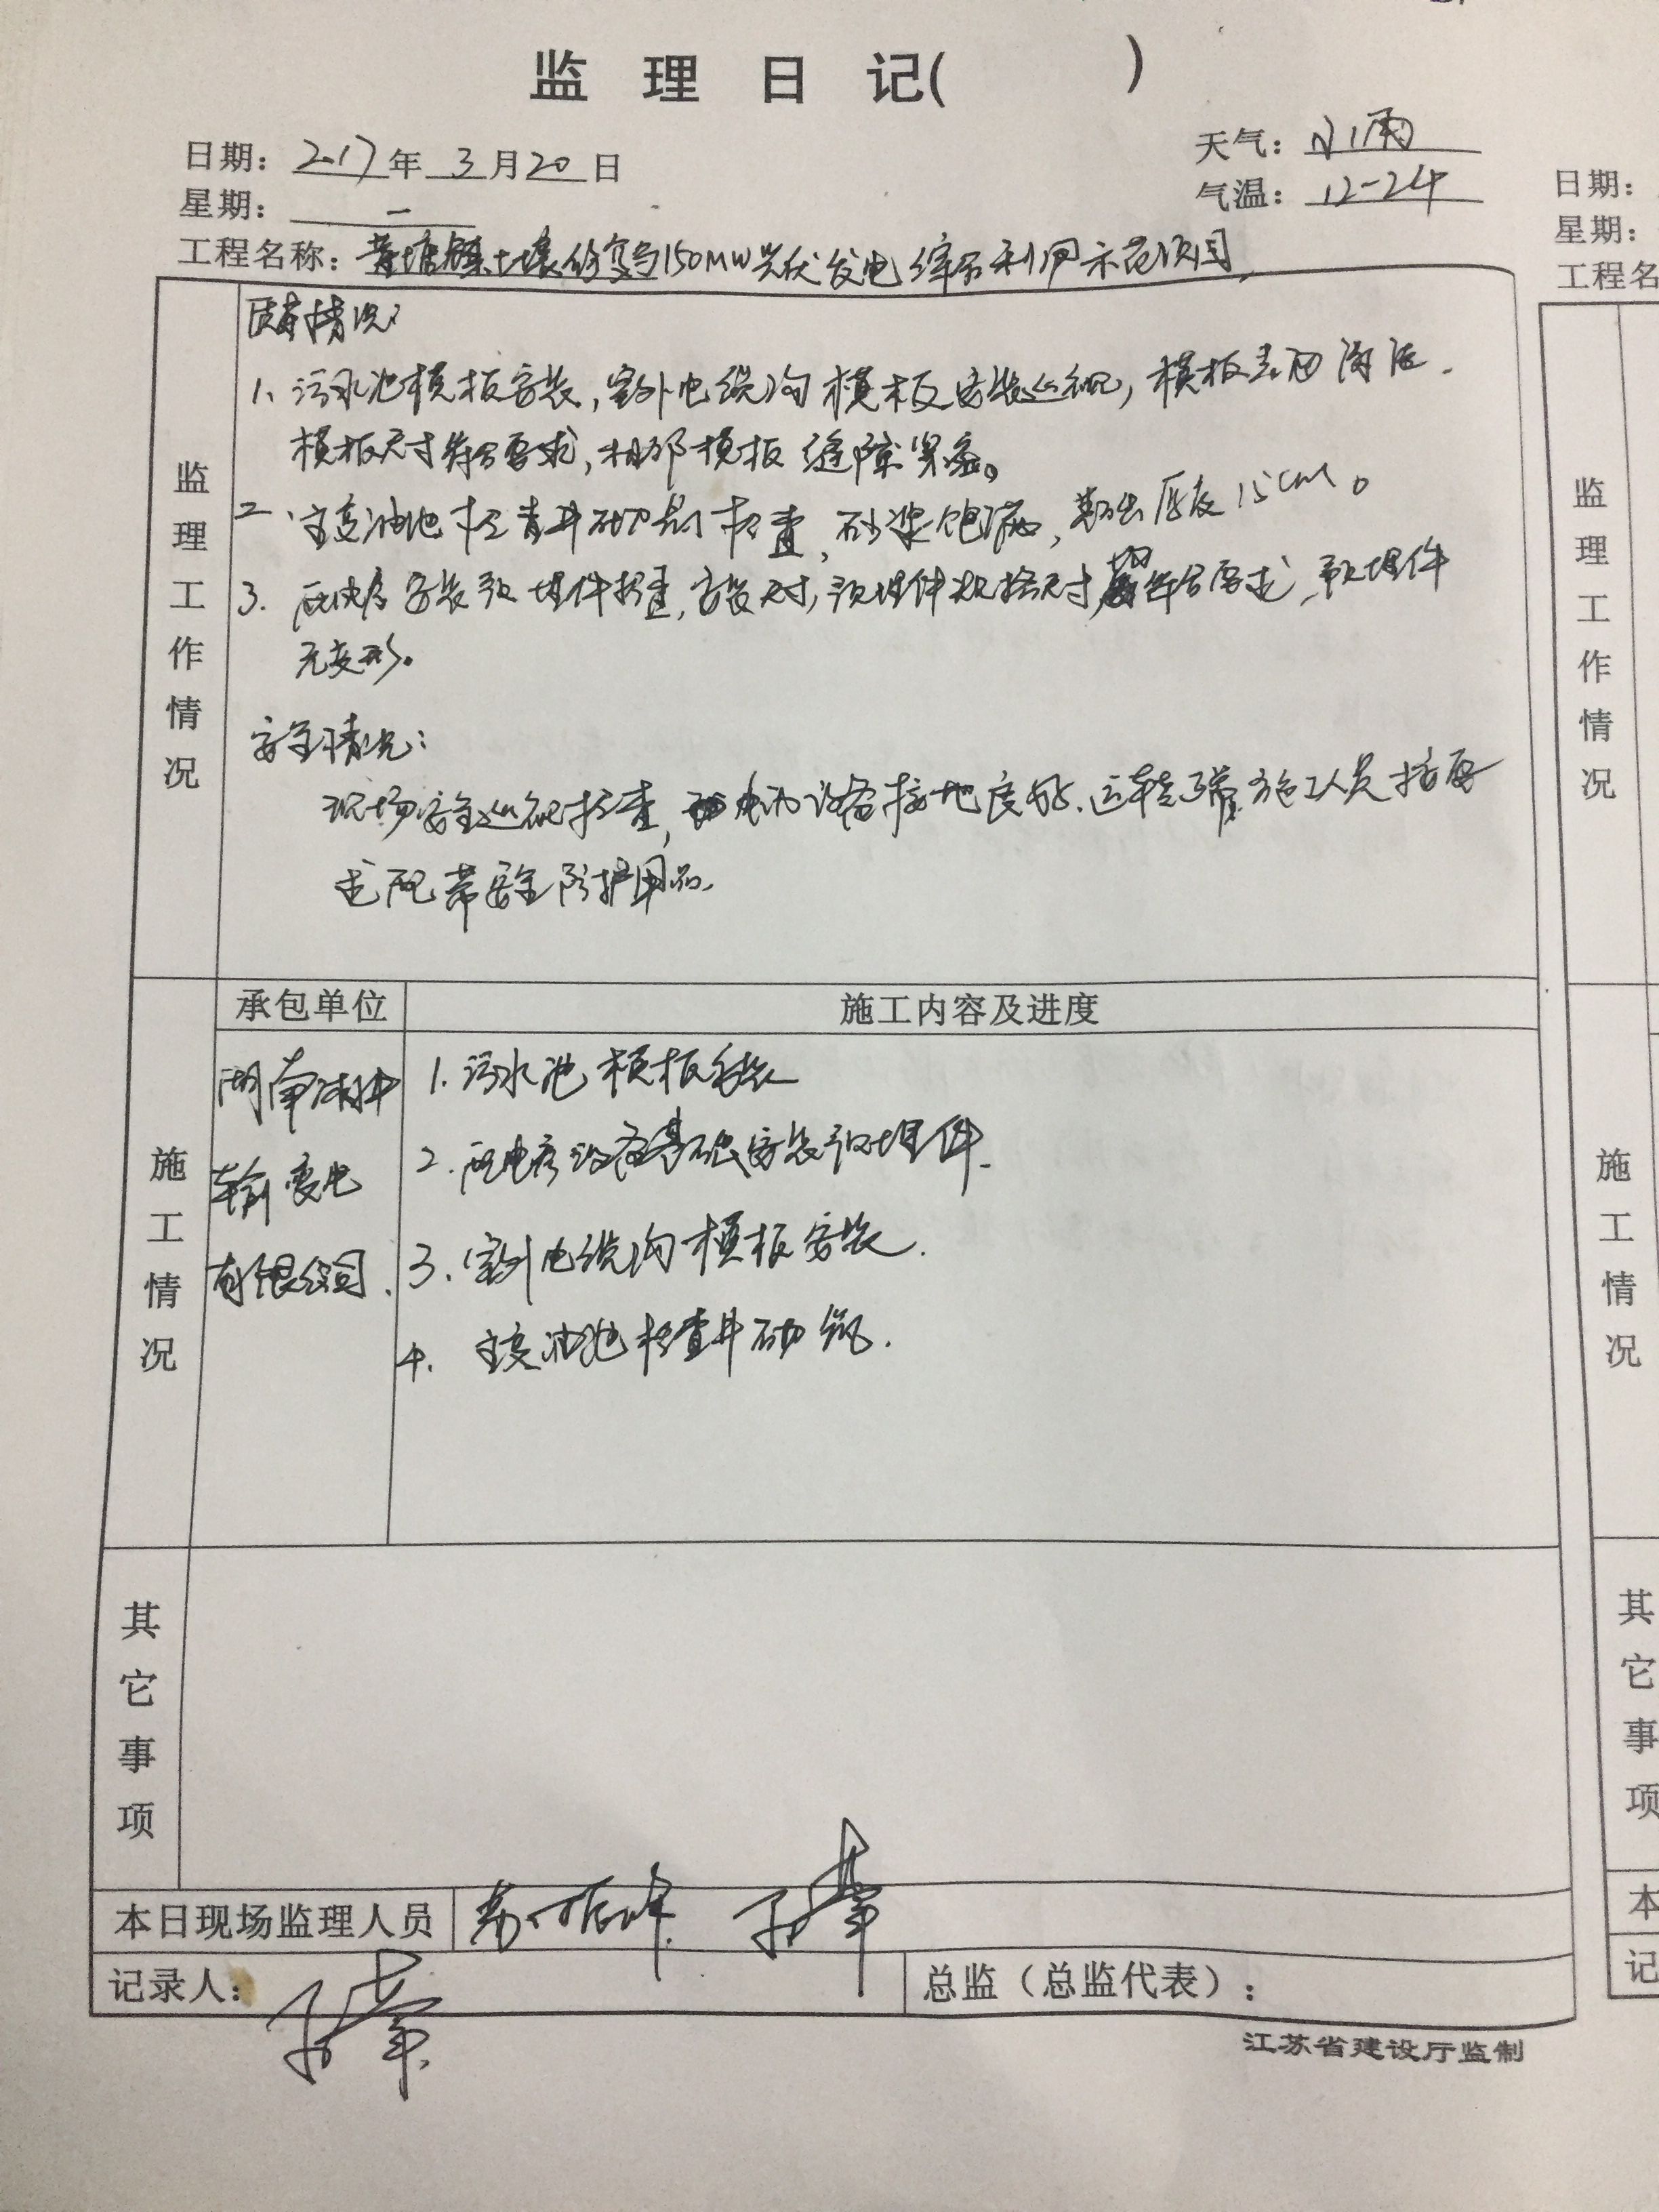 监理日记( )
日期: 2017年 3月20日
天气: 小雨
星期: 一
气温: 12-24
工程名称: 黄塘镇土壤修复与150MW光伏发电综合利用示范项目
监理工作情况
质量情况:
1、污水池模板安装,室外电缆沟模板安装巡视,模板表面清洁.
模板尺寸符合要求,相邻模板缝隙紧密。
二、主变油池检查井砌筑检查,砂浆饱满,厚度15cm。
3. 配电房安装预埋件检查,安装尺寸,预埋件规格尺寸均符合要求,预埋件
无变形。
安全情况:
现场安全巡视检查,电动设备接地良好.运转正常.施工人员按要
求配带安全防护用品.
承包单位
施工内容及进度
施工情况
湖南
输变电
有限公司.
1.污水池模板安装
2.配电房设备基础安装预埋件.
3.室外电缆沟模板安装.
4. 主变油池检查井砌筑.
其它事项
本日现场监理人员
记录人:
总监(总监代表):
江苏省建设厅监制
日期:
星期:
工程名
监理工作情况
施工情况
其它事项
本
记